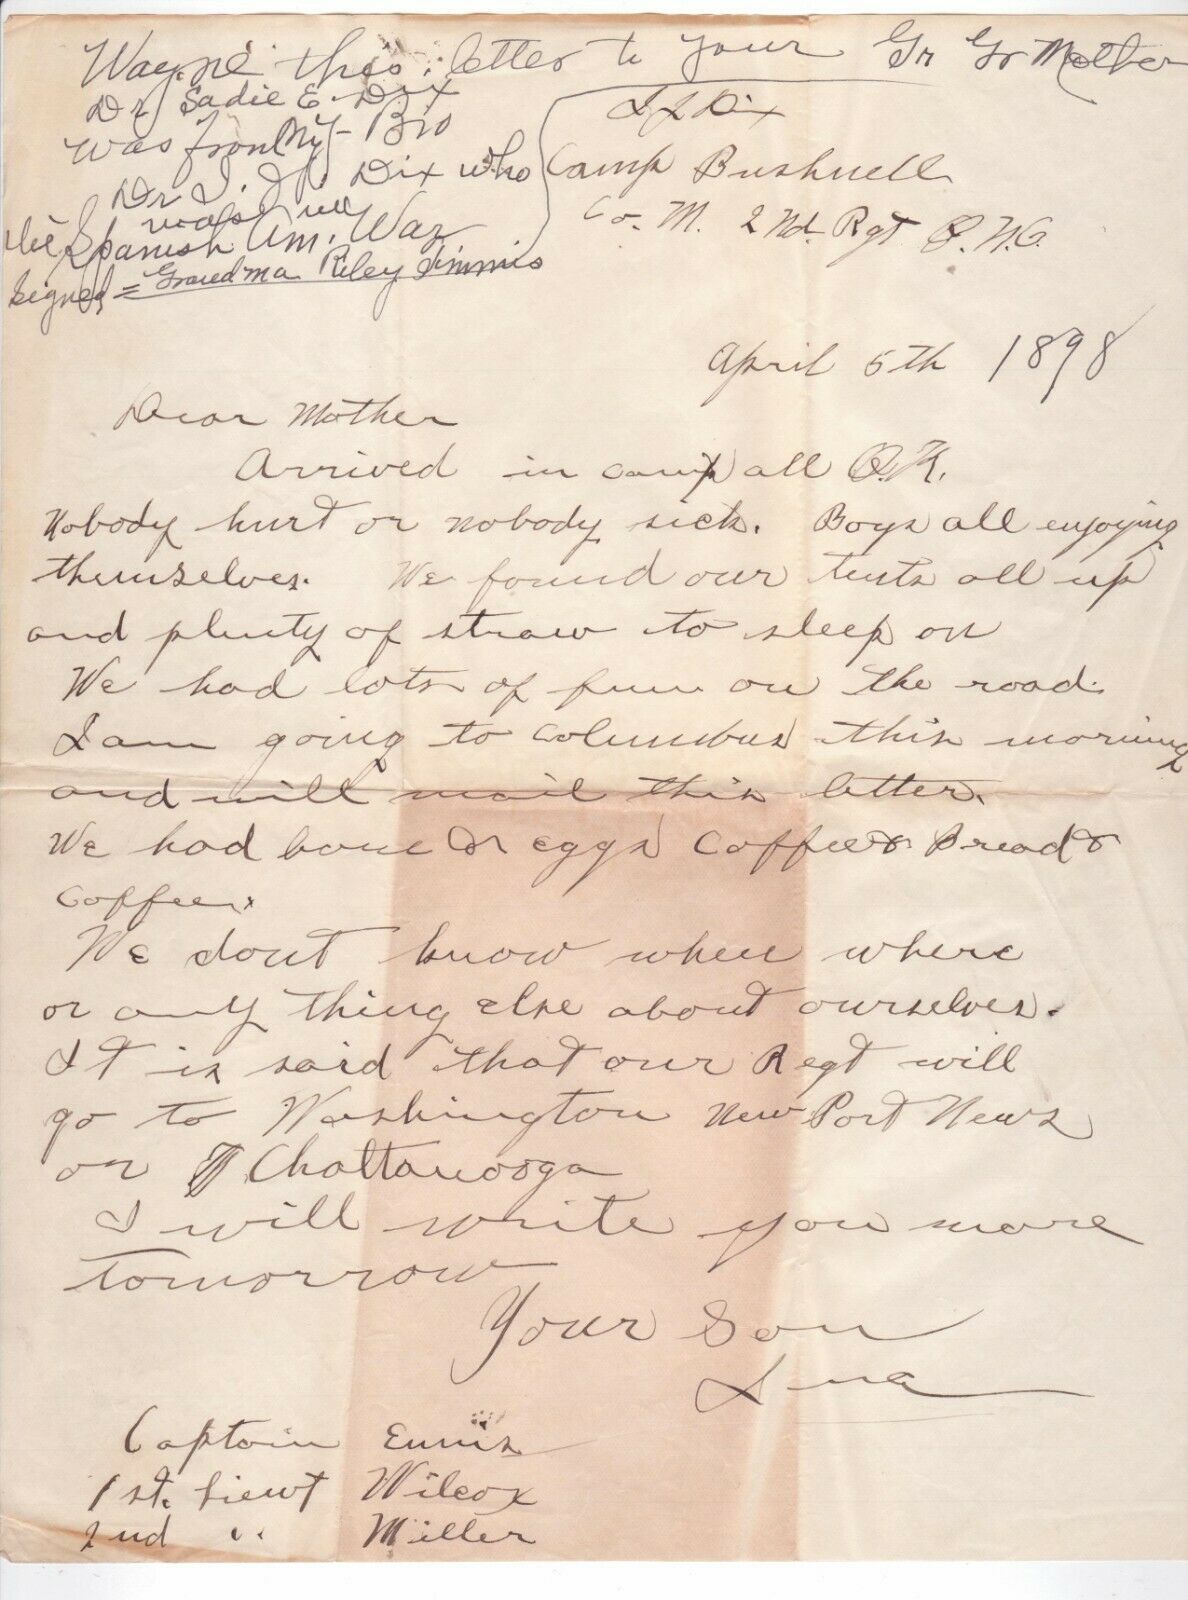 Wayne this letter to your Gr Gr Mother
Dr Sadie E. Dix
was from My Bro
Dr I. J. Dix who
was in
the Spanish Am. War
Signed = Grandma Riley Timmis
I J Dix
Camp Bushnell
Co. M. 2nd Rgt O.N.G.
April 5th 1898
Dear Mother
Arrived in camp all O.K.
Nobody hurt or nobody sick. Boys all enjoying
themselves. We found our tents all up
and plenty of straw to sleep on
We had lots of fun on the road.
I am going to Columbus this morning
and will mail this letter.
We had eggs Coffee & Bread &
Coffee.
We dont know when where
or any thing else about ourselves.
It is said that our Regt will
go to Washington New Port News
or Chattanooga
I will write you more
tomorrow
Your Son
Captain Ennis
1st. Lieut Wilcox
2nd " Miller